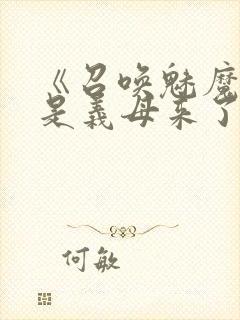 《召唤魅魔
是义母来了
何敏